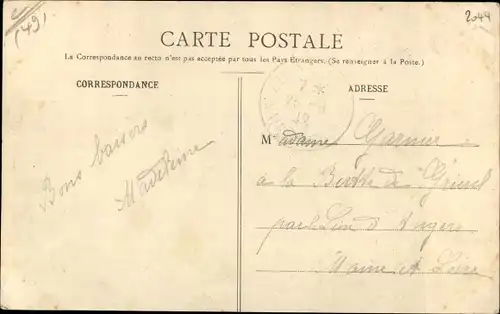 (49)
2044
CARTE POSTALE
La Correspondance au recto n'est pas acceptée par tous les Pays Étrangers. (Se renseigner à la Poste.)
CORRESPONDANCE
ADRESSE
Bons baisers
Madeleine
Madame Garnier
à la Butte de
par Lion d'Angers
Maine et Loire